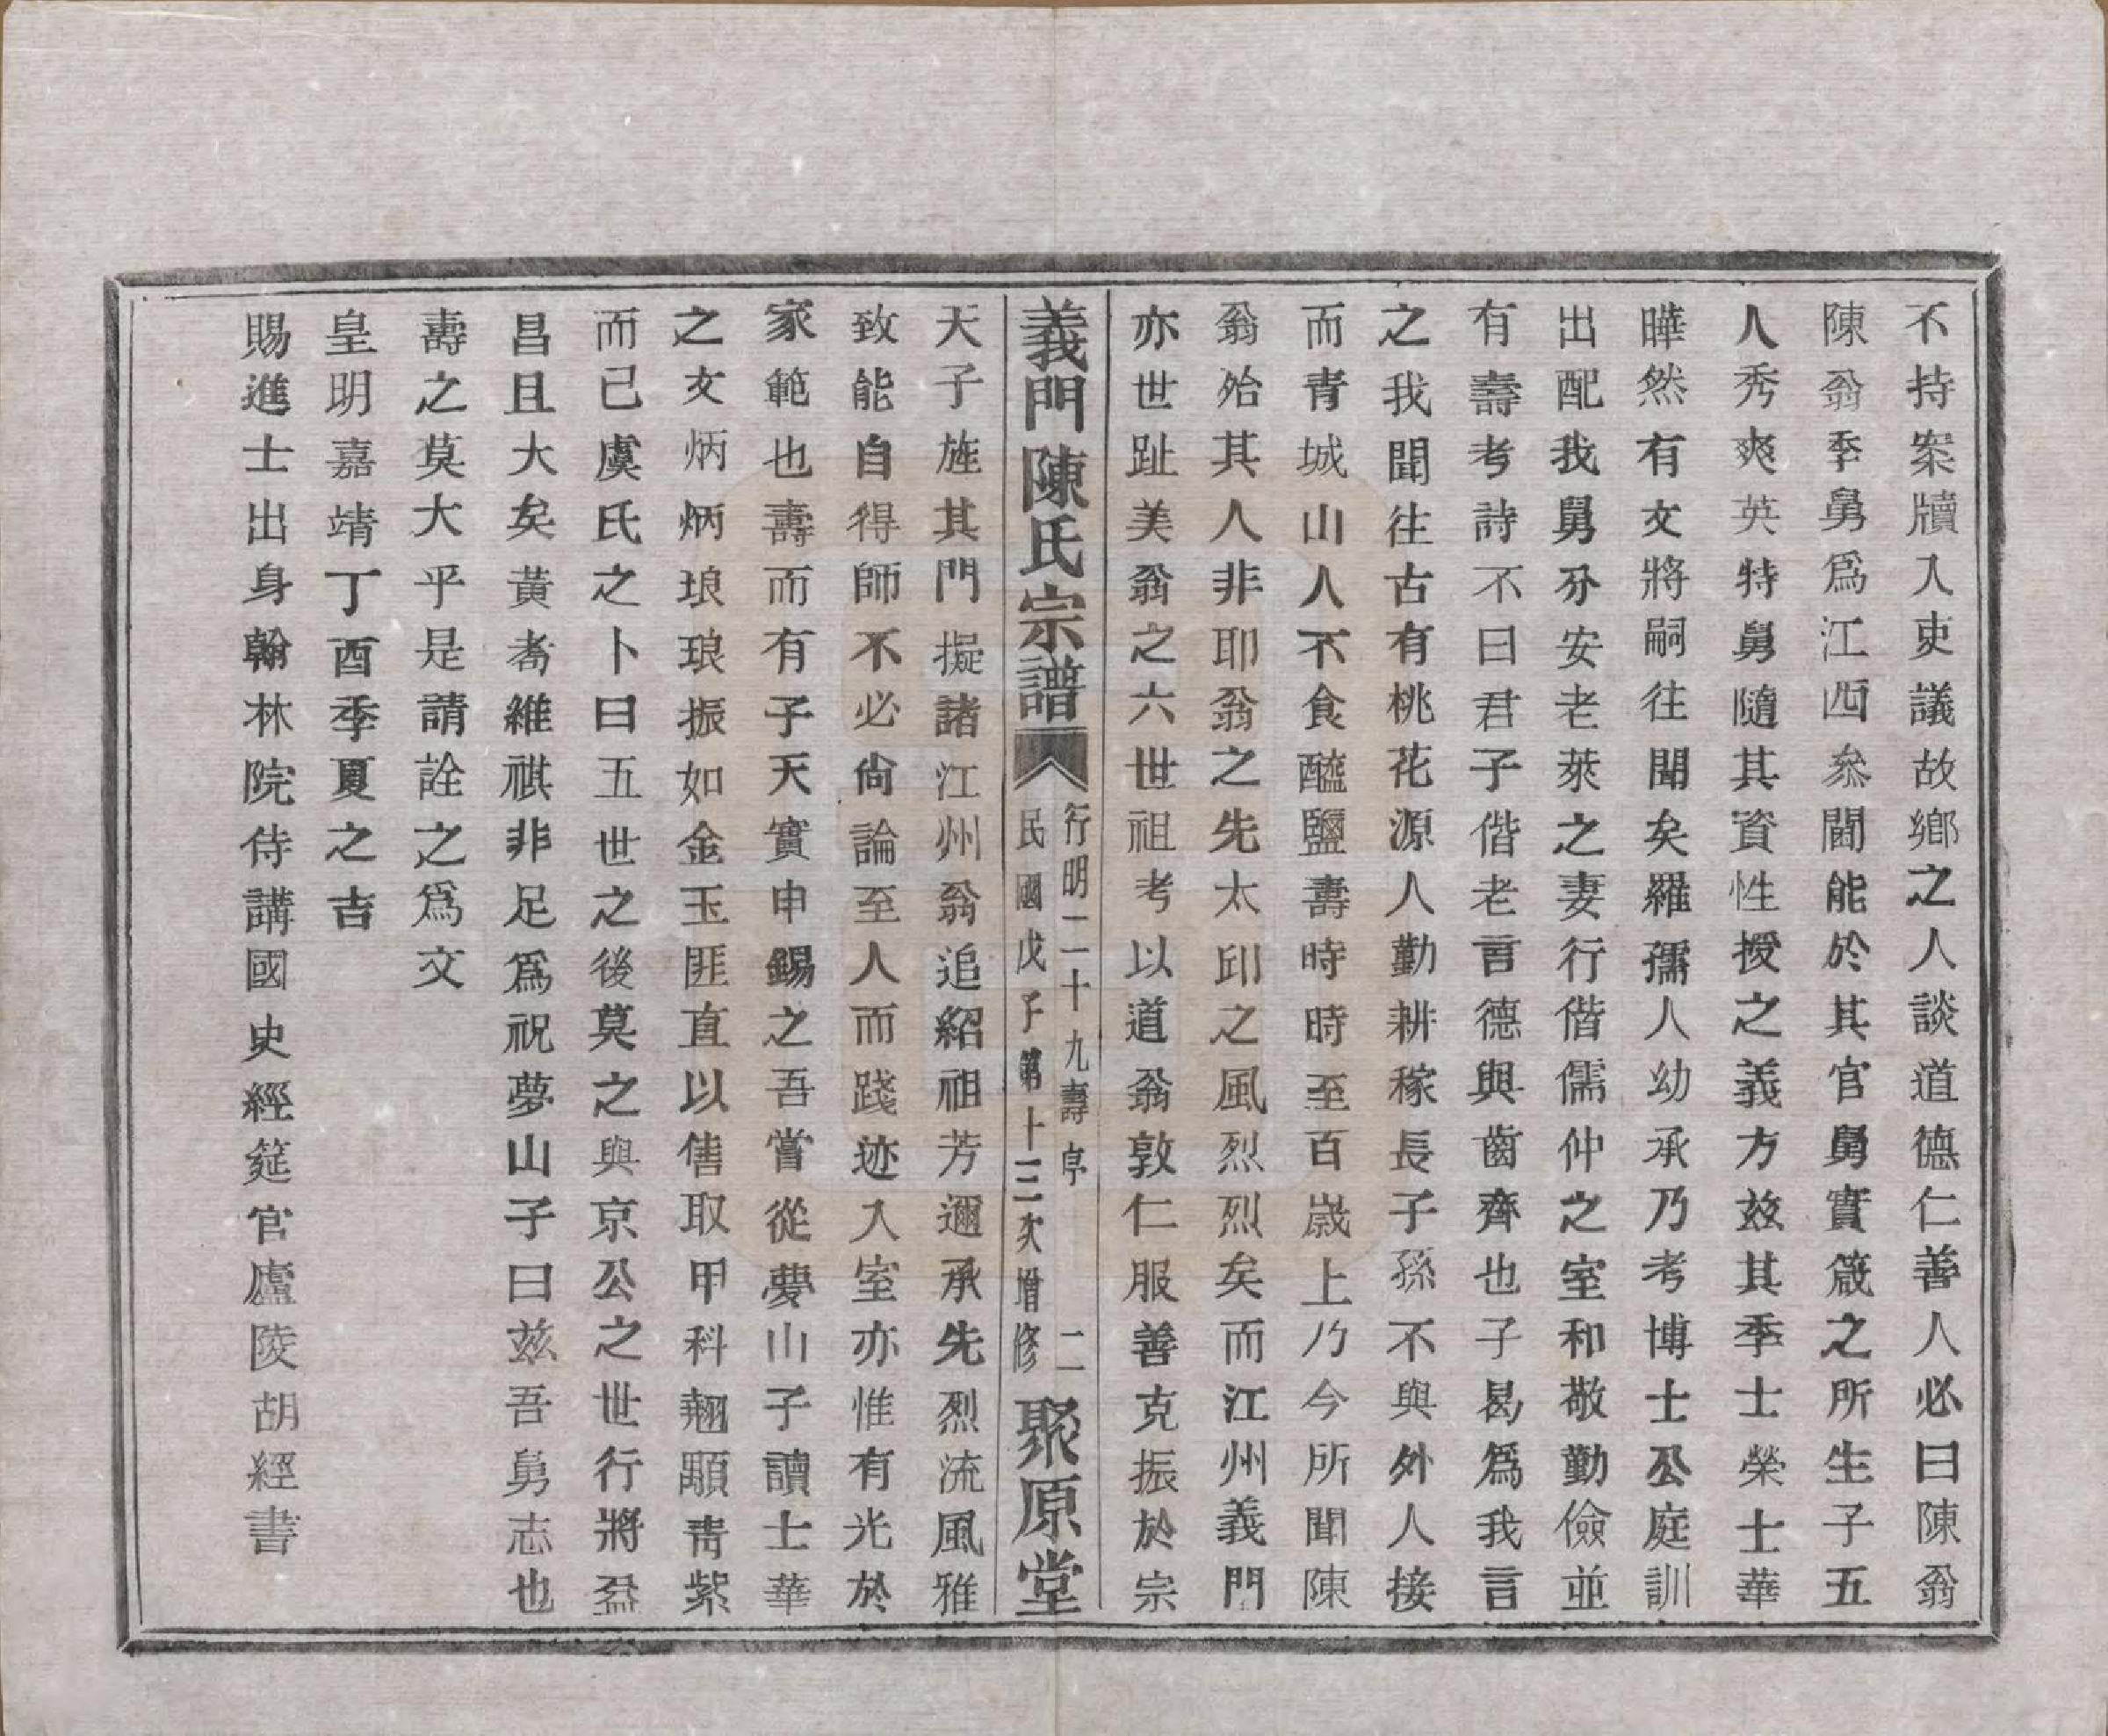 不持案牘入吏議故鄉之人談道德仁善人必曰陳翁
陳翁季舅爲江西叅閫能於其官舅實箴之所生子五
人秀爽英特舅隨其資性授之義方玆其季士榮士華
曄然有文將嗣往聞矣羅孺人幼承乃考博士公庭訓
出配我舅分安老萊之妻行偕儒仲之室和敬勤儉並
有壽考詩不曰君子偕老言德與齒齊也子曷爲我言
之我聞往古有桃花源人勤耕稼長子孫不與外人接
而青城山人不食醯鹽壽時時至百歲上乃今所聞陳
翁殆其人非耶翁之先太邱之風烈烈矣而江州義門
亦世趾美翁之六世祖考以道翁敦仁服善克振於宗
義門陳氏宗譜
行明二十九壽序 二
民國戊子第十三次增修
聚原堂
天子旌其門擬諸江州翁追紹祖芳邇承先烈流風雅
致能自得師不必尙論至人而踐迹入室亦惟有光於
家範也壽而有子天實申錫之吾嘗從夢山子讀士華
之文炳炳琅琅振如金玉匪直以售取甲科翹顒青紫
而已虞氏之卜曰五世之後莫之與京公之世行將益
昌且大矣黃耉維祺非足爲祝夢山子曰玆吾舅志也
壽之莫大乎是請詮之爲文
皇明嘉靖丁酉季夏之吉
賜進士出身翰林院侍講國史經筵官廬陵胡經書